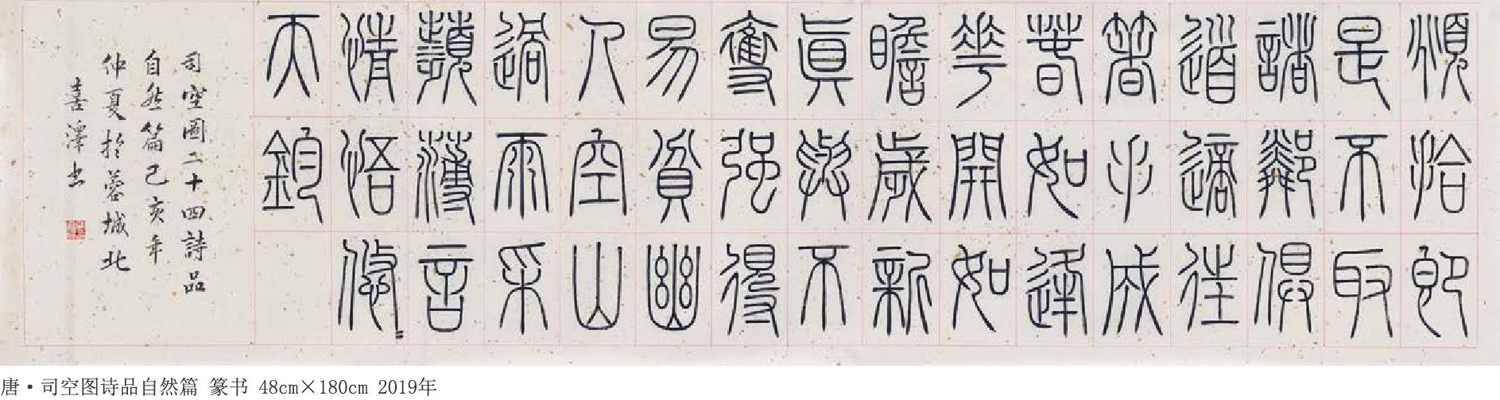 頫拾即
是不取
諸鄰俱
道適往
箸手成
春如逢
華開如
瞻歲新
真與不
奪强得
易貧幽
人空山
過雨采
蘋薄言
情悟悠〻
天鈞
司空圖二十四詩品
自然篇己亥年
仲夏於蓉城北
喜澤书
唐·司空图诗品自然篇 篆书 48cm×180cm 2019年